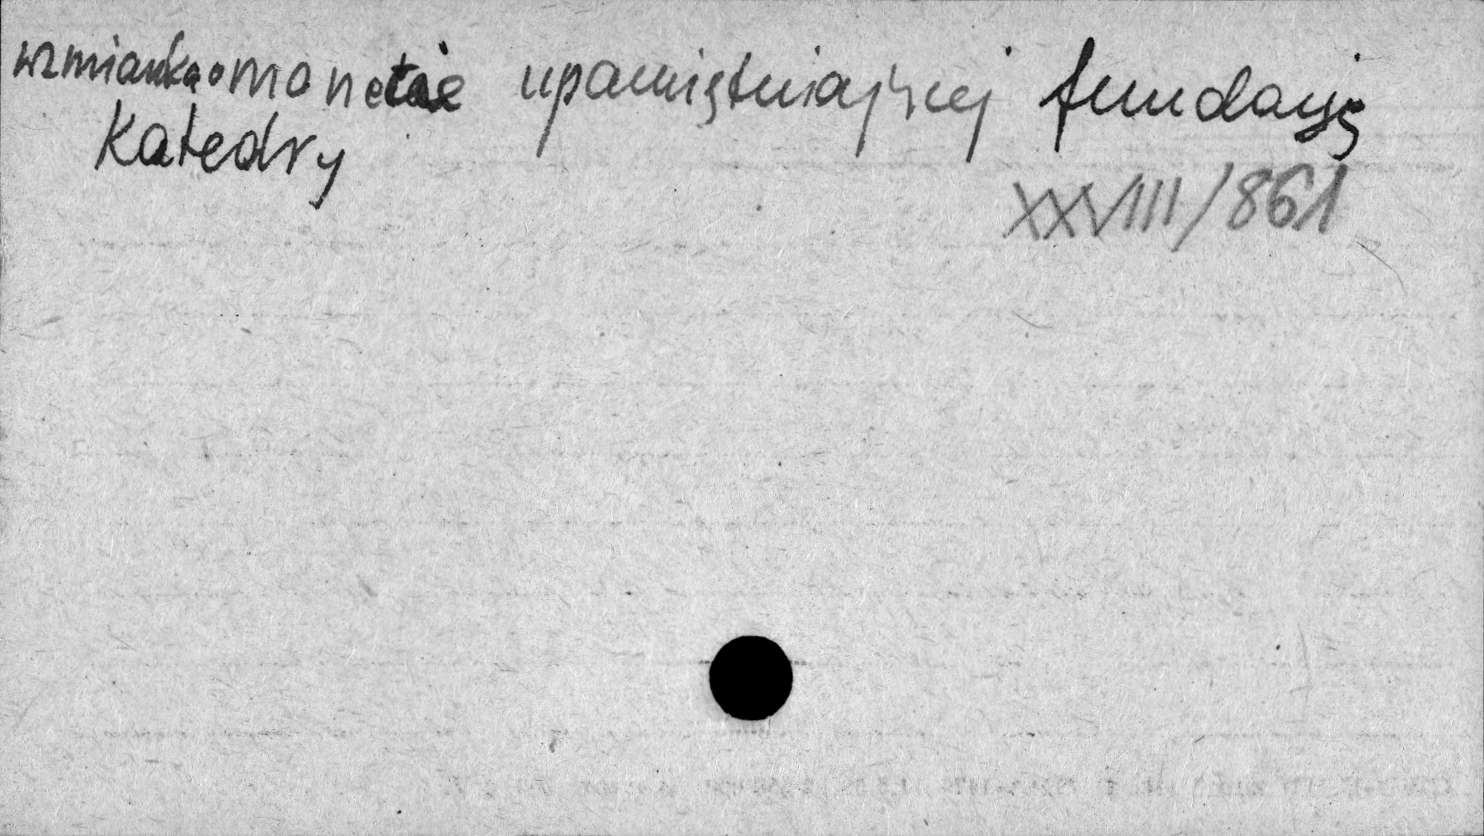 wzmianka o monecie upamiętniającej fundację
Katedry
XXVIII/861